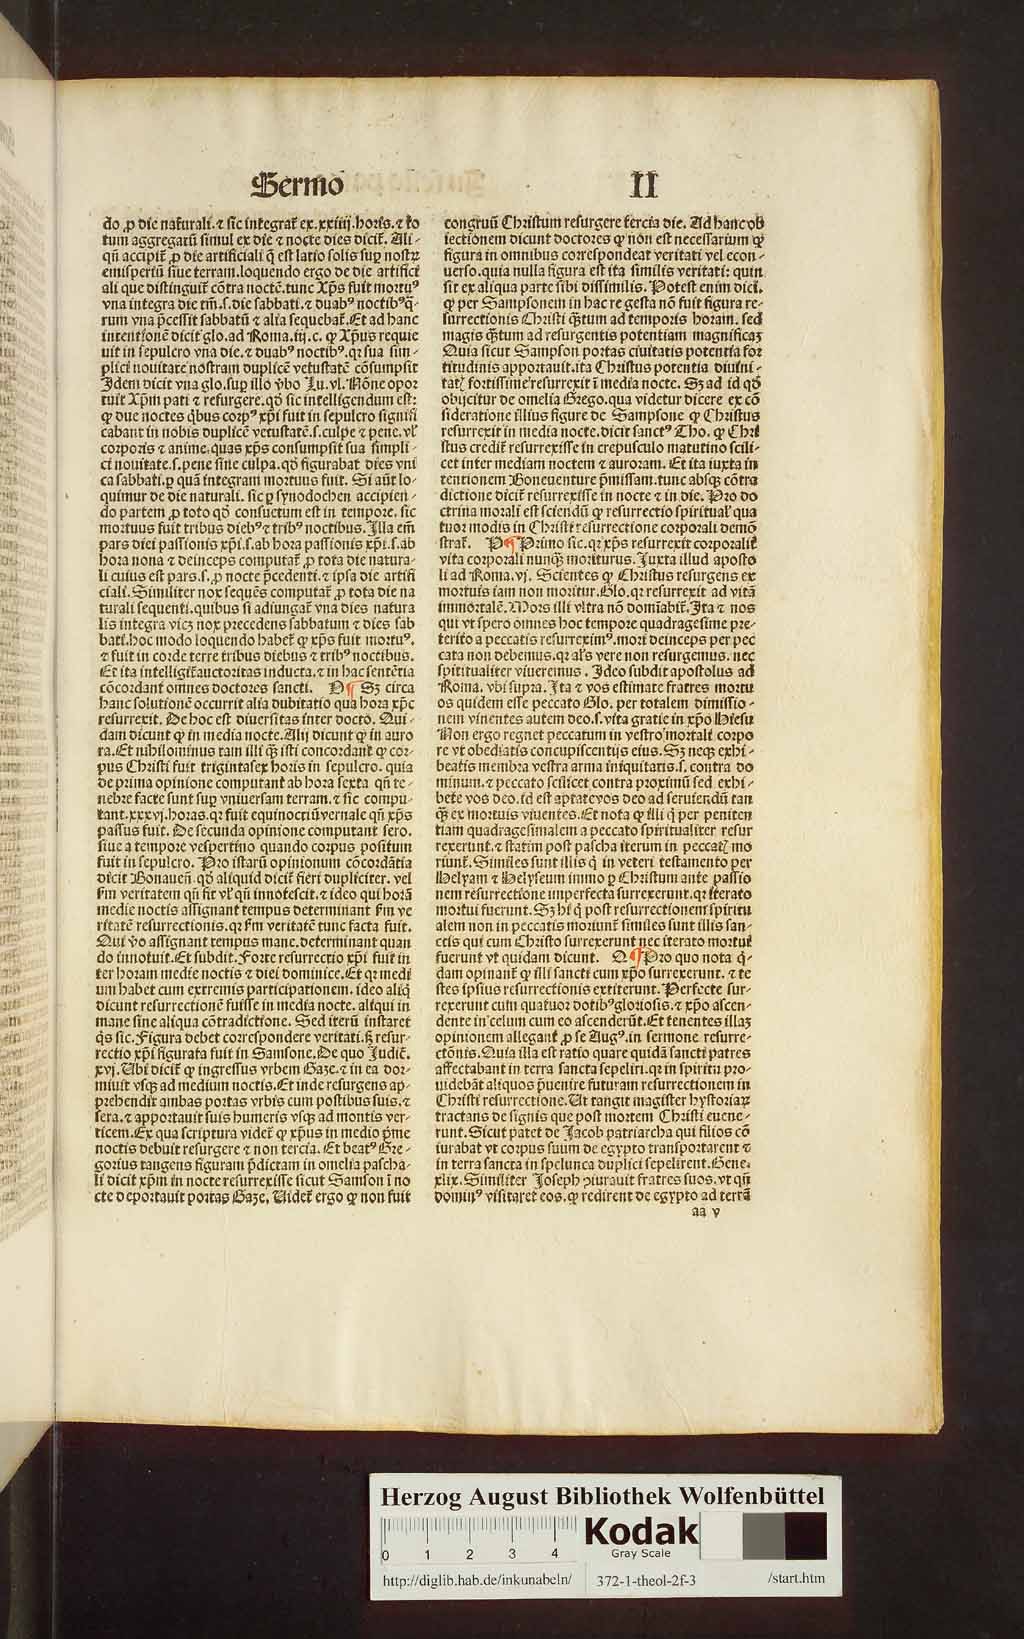 Sermo II
do ꝓ die naturali.⁊ sic integrat᷑ ex.xxiiij.horis.⁊ to
tum aggregatū simul ex die ⁊ nocte dies dicit᷑. Ali-
qñ accipit᷑ ꝓ die artificiali q̄ est latio solis suꝑ nostrꝝ
emisperiū siue terram.loquendo ergo de die artifici
ali que distinguit᷑ cōtra noctē.tunc Xp̄s fuit mortuꝰ
vna integra die tm̄.s.die sabbati.⁊ duabꝰ noctibꝰ.q̄-
rum vna p̄cessit sabbatū ⁊ alia sequebat᷑.Et ad hanc
intentionē dicit glo.ad Roma.iij.c. ꝙ Xp̄us requie
uit in sepulcro vna die.⁊ duabꝰ noctibꝰ.qꝛ sua sim-
plici nouitate nostram duplicē vetustatē cōsumpsit
Idem dicit vna glo.suꝑ illo v̄bo Lu.vl. Nōne opor
tuit Xp̄m pati ⁊ resurgere.qđ sic intelligendum est:
ꝙ due noctes q̄bus corpꝰ xp̄i fuit in sepulcro signifi
cabant in nobis duplicē vetustatē.s.culpe ⁊ pene.vl᷑
corporis ⁊ anime.quas xp̄s consumpsit sua simpli-
ci nouitate.s.pene sine culpa.qđ figurabat dies vni
ca sabbati.ꝑ quā integram mortuus fuit. Si aūt lo-
quimur de die naturali. sic ꝑ synodochen accipien-
do partem ꝓ toto qđ consuetum est in tempore. sic
mortuus fuit tribus diebꝰ ⁊ tribꝰ noctibus. Illa em̄
pars diei passionis xp̄i.s.ab hora passionis xp̄i.s.ab
hora nona ⁊ deinceps computat᷑ ꝓ tota die natura-
li cuius est pars.s.ꝓ nocte p̄cedenti.⁊ ipsa die artifi
ciali. Similiter nox sequēs computat᷑ ꝓ tota die na
turali sequenti.quibus si adiungat᷑ vna dies natura
lis integra vicꝫ nox precedens sabbatum ⁊ dies sab
bati.hoc modo loquendo habet᷑ ꝙ xp̄s fuit mortuꝰ.
⁊ fuit in corde terre tribus diebus ⁊ tribꝰ noctibus.
Et ita intelligit᷑ auctoritas inducta.⁊ in hac sentētia
cōcordant omnes doctores sancti. N ¶ Sꝫ circa
hanc solutionē occurrit alia dubitatio qua hora xp̄s
resurrexit. De hoc est diuersitas inter docto. Qui-
dam dicunt ꝙ in media nocte.Alij dicunt ꝙ in auro
ra.Et nihilominus tam illi q̄ꝫ isti concordant ꝙ cor-
pus Christi fuit trigintasex horis in sepulcro. quia
de prima opinione computant ab hora sexta qñ te-
nebre facte sunt suꝑ vniuersam terram.⁊ sic compu-
tant.xxxvj.horas.qꝛ fuit equinoctiū vernale qñ xp̄s
passus fuit. De secunda opinione computant sero.
siue a tempore vespertino quando corpus positum
fuit in sepulcro. Pro istarū opinionum cōcordātia
dicit Bonauen̄. qđ aliquid dicit᷑ fieri dupliciter. vel
fm veritatem qñ fit vl᷑ qñ innotescit.⁊ ideo qui horā
medie noctis assignant tempus determinant fm ve
ritatē resurrectionis.qꝛ fm veritatē tunc facta fuit.
Qui v̄o assignant tempus mane.determinant quan
do innotuit.Et subdit. Forte resurrectio xp̄i fuit in
ter horam medie noctis ⁊ diei dominice.Et qꝛ medi
um habet cum extremis participationem. ideo aliq̄
dicunt resurrectionē fuisse in media nocte. aliqui in
mane sine aliqua cōtradictione. Sed iterū instaret
q̄s sic. Figura debet correspondere veritati.sꝫ resur-
rectio xp̄i figurata fuit in Samsone.De quo Judic̄.
xvj. Ubi dicit᷑ ꝙ ingressus vrbem Gaze.⁊ in ea dor-
miuit vsqꝫ ad medium noctis.Et inde resurgens ap-
prehendit ambas portas vrbis cum postibus suis.⁊
sera.⁊ apportauit suis humeris vsqꝫ ad montis ver-
ticem.Ex qua scriptura videt᷑ ꝙ xp̄us in medio p̄me
noctis debuit resurgere ⁊ non tercia. Et beatꝰ Gre-
gorius tangens figuram p̄dictam in omelia pascha-
li dicit xp̄m in nocte resurrexisse sicut Samson ī no
cte deportauit portas Gaze. Videt᷑ ergo ꝙ non fuit
congruū Christum resurgere tercia die. Ad hanc ob
iectionem dicunt doctores ꝙ non est necessarium ꝙ
figura in omnibus correspondeat veritati vel econ-
uerso.quia nulla figura est ita similis veritati: quin
sit ex aliqua parte sibi dissimilis. Potest enim dici.
ꝙ per Sampsonem in hac re gesta nō fuit figura re-
surrectionis Christi q̄ꝫtum ad temporis horam. sed
magis q̄ꝫtum ad resurgentis potentiam magnificaꝫ
Quia sicut Sampson portas ciuitatis potentia for
titudinis apportauit.ita Christus potentia diuini-
tatꝭ fortissime resurrexit ī media nocte. Sꝫ ad id qđ
obijcitur de omelia Grego.qua videtur dicere ex cō
sideratione illius figure de Sampsone ꝙ Christus
resurrexit in media nocte.dicit sanctꝰ Tho. ꝙ Chri
stus credit᷑ resurrexisse in crepusculo matutino scili-
cet inter mediam noctem ⁊ auroram. Et ita iuxta in
tentionem Boneuenture p̄missam.tunc absqꝫ cōtra
dictione dicit᷑ resurrexisse in nocte ⁊ in die. Pro do
ctrina morali est sciendū ꝙ resurrectio spiritual᷑ qua
tuor modis in Christi resurrectione corporali demō
strat᷑. P ¶ Primo sic.qꝛ xp̄s resurrexit corporalit᷑
vita corporali nunq̄ꝫ moriturus. Juxta illud aposto
li ad Roma.vj. Scientes ꝙ Christus resurgens ex
mortuis iam non moritur.Glo.qꝛ resurrexit ad vitā
immortalē.Mors illi vltra nō domīabit᷑.Ita ⁊ nos
qui vt spero omnes hoc tempore quadragesime pre-
terito a peccatis resurreximꝰ.mori deinceps per pec
cata non debemus.qꝛ al᷑s vere non resurgemus. nec
spiritualiter viueremus. Ideo subdit apostolus ad
Roma. vbi supra. Ita ⁊ vos estimate fratres mortu
os quidem esse peccato Glo. per totalem dimissio-
nem viuentes autem deo.s.vita gratie in xp̄o Hiesu
Non ergo regnet peccatum in vestro mortali corpo
re vt obediatis concupiscentijs eius. Sꝫ neqꝫ exhi-
beatis membra vestra arma iniquitatis.s. contra do
minum.⁊ peccato scilicet contra proximū sed exhi-
bete vos deo.id est aptatevos deo ad seruiendū tan
q̄ꝫ ex mortuis viuentes.Et nota ꝙ illi q̄ per peniten
tiam quadragesimalem a peccato spiritualiter resur
rexerunt.⁊ statim post pascha iterum in peccatꝭ mo
riunt᷑. Similes sunt illis q̄ in veteri testamento per
Helyam ⁊ Helyseum immo ꝑ Christum ante passio
nem resurrectione imperfecta surrexerunt.qꝛ iterato
mortui fuerunt. Sꝫ hi q̄ post resurrectionem spiritu
alem non in peccatis moriunt᷑ similes sunt illis san-
ctis qui cum Christo surrexerunt nec iterato mortui
fuerunt vt quidam dicunt. Q ¶ Pro quo nota q̄-
dam opinant᷑ ꝙ illi sancti cum xp̄o surrexerunt. ⁊ te
stes ipsius resurrectionis extiterunt. Perfecte sur-
rexerunt cum quatuor dotibꝰ gloriosis.⁊ xp̄o ascen-
dente in celum cum eo ascenderūt.Et tenentes illaꝫ
opinionem allegant ꝓ se Augꝰ.in sermone resurre-
ctōnis.Quia illa est ratio quare quidā sancti patres
affectabant in terra sancta sepeliri.qꝛ in spiritu pro-
uidebāt aliquos p̄uenire futuram resurrectionem in
Christi resurrectione.Ut tangit magister hystoriaꝝ
tractans de signis que post mortem Christi euene-
runt. Sicut patet de Jacob patriarcha qui filios cō
iurabat vt corpus suum de egypto transportarent ⁊
in terra sancta in spelunca duplici sepelirent.Gene.
xlix. Similiter Joseph ↄiurauit fratres suos.vt qñ
dominꝰ visitaret eos.ꝙ redirent de egypto ad terrā
aa v
Herzog August Bibliothek Wolfenbüttel
0 1 2 3 4
Kodak
Gray Scale
http://diglib.hab.de/inkunabeln/ 372-1-theol-2f-3 /start.htm